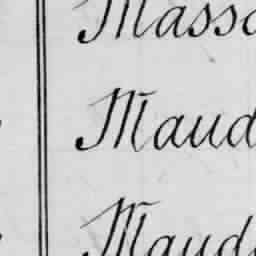 Massa
Maud
Maud